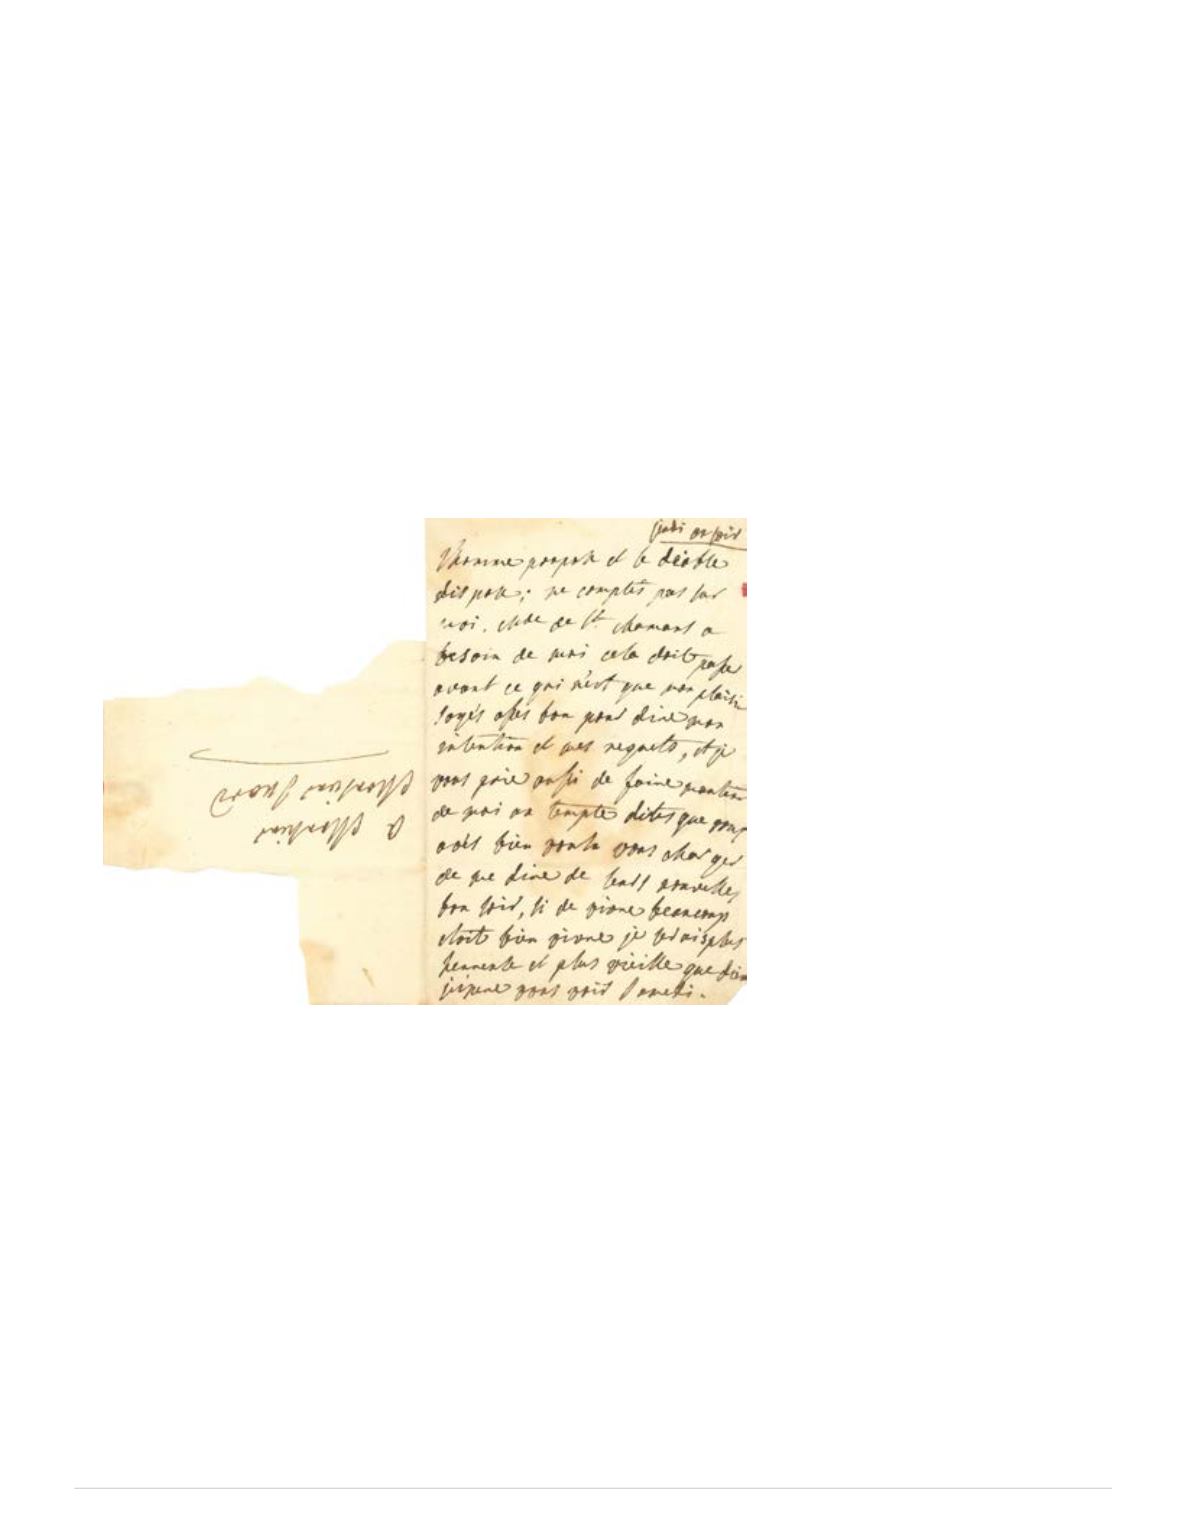 jeudi au soir
l'homme propose et le diable
dispose; ne comptés pas sur
moi. Mde de St. chamans a
besoin de moi cela doit passer
avant ce qui n'est que mon plaisir
soyés assés bon pour dire mon
intention et mes regrets, et je
vous prie aussi de faire
de moi au temple dites que vous
avés bien voulu vous charger
de me dire de leurs nouvelles
bon soir, si de vivre beaucoup
etoit bien vivre je serois plus
et plus vieille que
vous voir samedi.
a Monsieur
Monsieur Suard